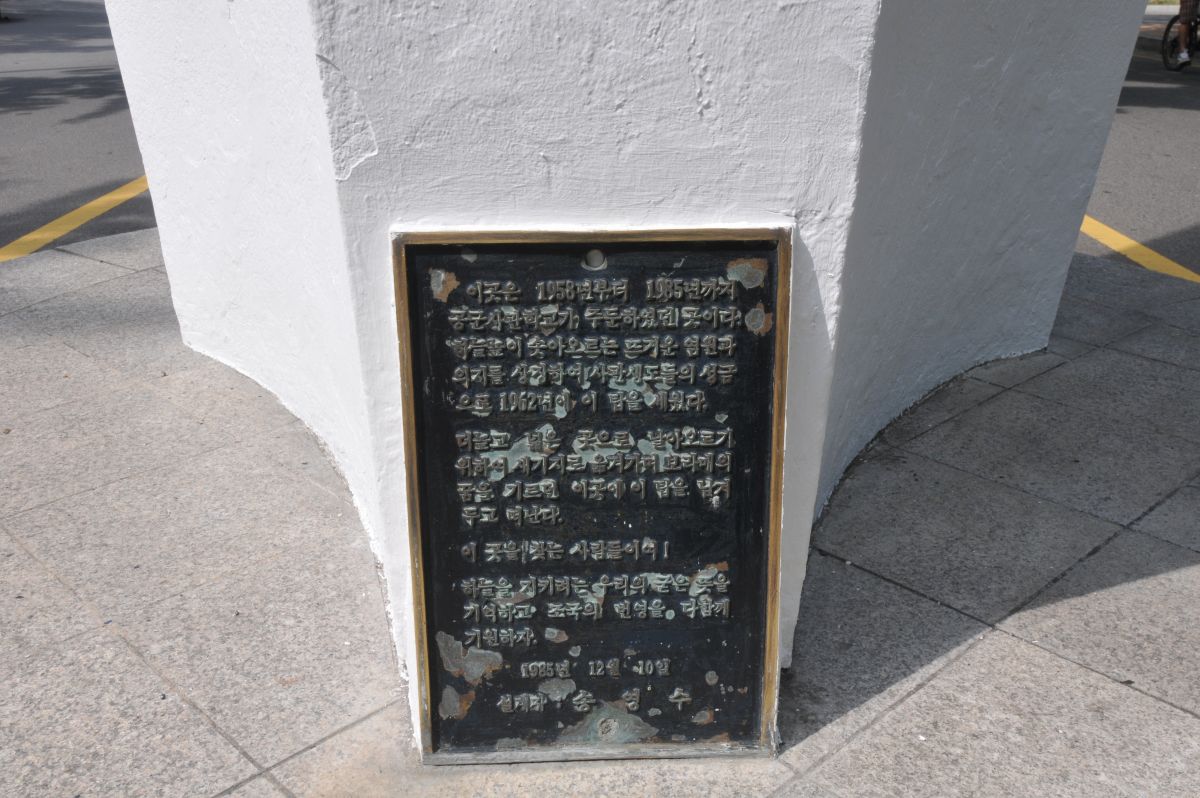 이곳은 1958년부터 1985년까지
공군사관학교가 주둔하였던 곳이다.
하늘로 솟아오르는 뜨거운 염원과
의지를 상징하여 사관생도들의 성금
으로 1962년에 이 탑을 세웠다.
더높고 넓은 곳으로 날아오르기
위하여 새기지로 옮겨가며 보라매의
꿈을 기르던 이곳에 이 탑을 남겨
두고 떠난다.
이 곳을 찾는 사람들이여!
하늘을 지키려는 우리의 굳은 뜻을
기억하고 조국의 번영을 다함께
기원하자.
1985년 12월 10일
설계자 송 영 수